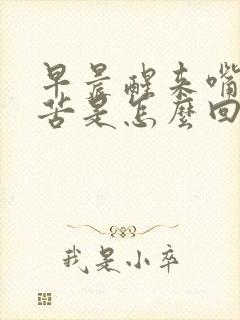 早晨醒来嘴
苦是怎麼回
我是小卒